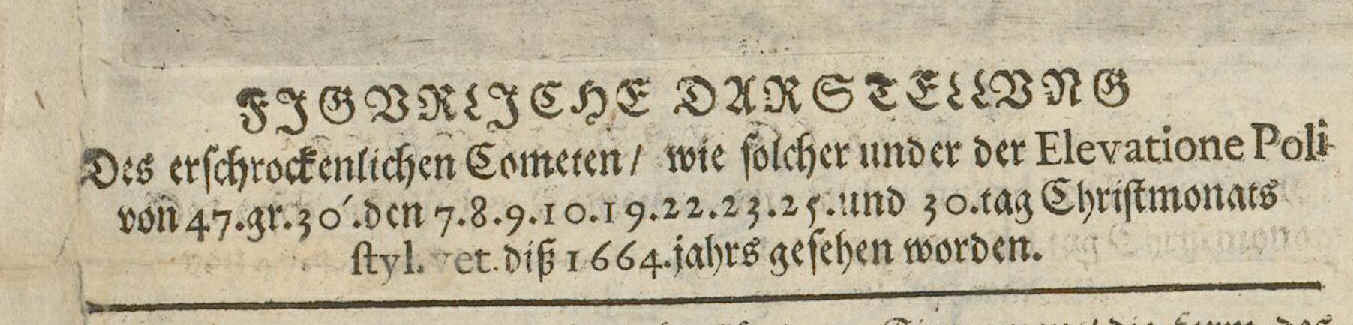 FIGVRLICHE DARSTELLVNG
Des erschrockenlichen Cometen / wie solcher under der Elevatione Poli
von 47.gr.30´.den 7.8.9.10.19.22.23.25.und 30.tag Christmonats
styl. vet. diß 1664.jahrs gesehen worden.